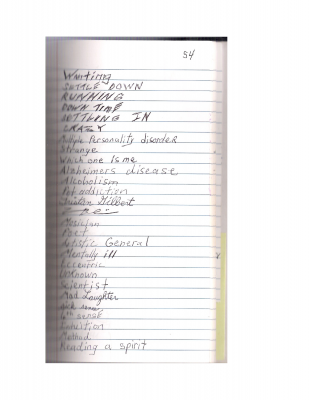 54
Writing
SETTLE DOWN
RUNNING
DOWN TIME
SETTLING IN
CRAZY
Multiple Personality disorder
Strange
Which one Is me
Alzheimers disease
Alcoholism
addiction
Gilbert
Musician
Poet
Artistic General
Mentally ill
Eccentric
Unknown
Scientist
Mad Laughter
Sick
6th sense
Intuition
Method
Reading a spirit